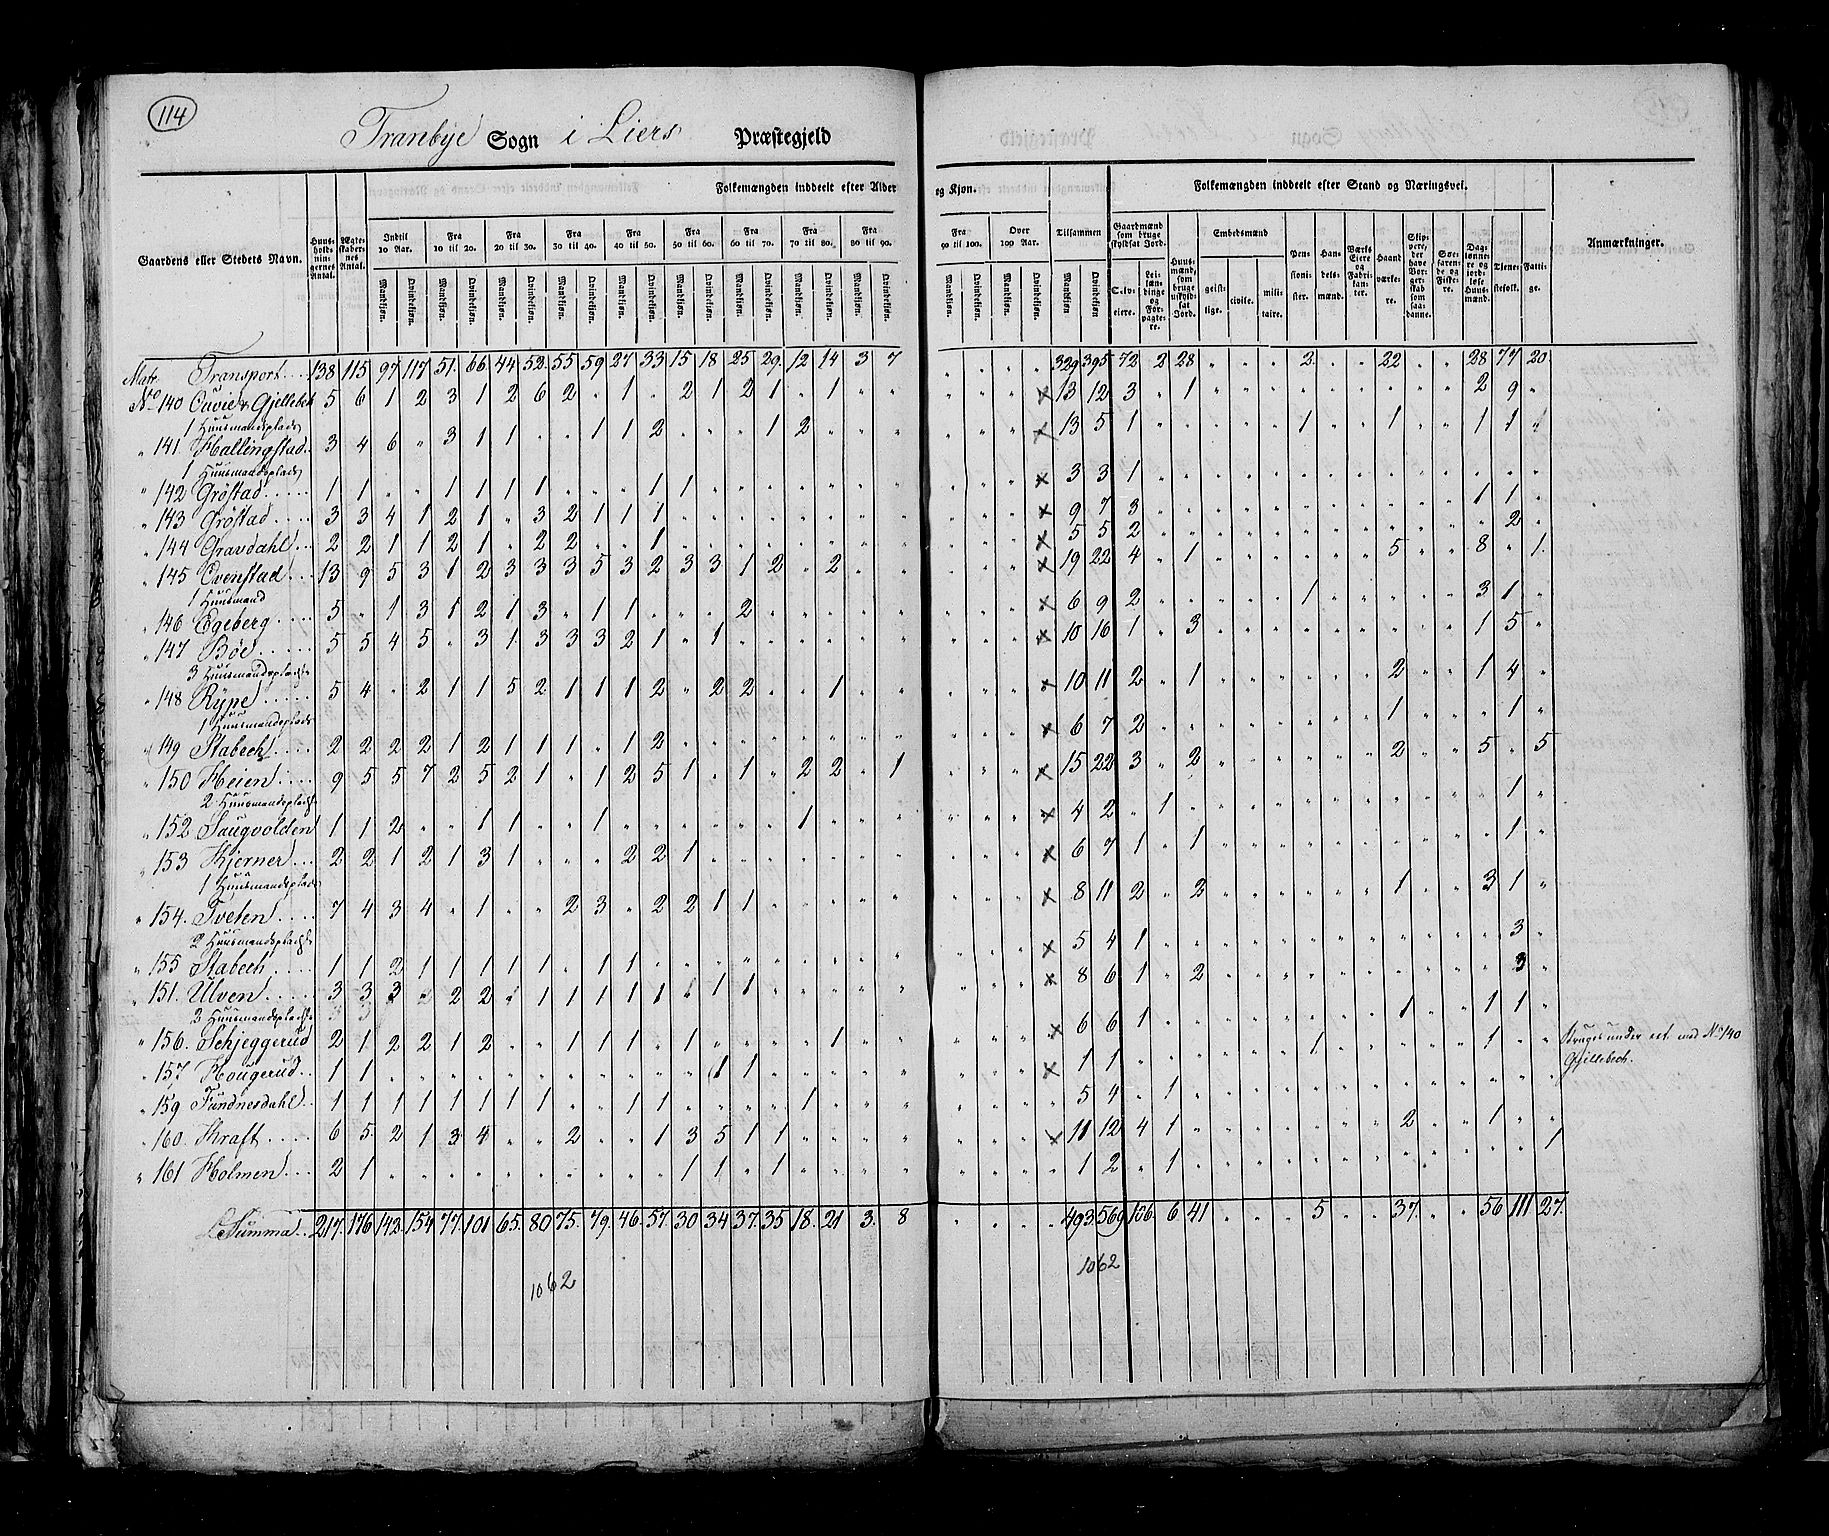 114
Tranbye Sogn i Liers Præstegjeld
Folkemængden inddeelt efter Alder og Kjøn.
Folkemængden inddeelt efter Stand og Næringsvei.
Gaardens eller Stedets Navn.
Huusholdningernes Antal.
Ægteskabernes Antal.
Indtil 10 Aar.
Fra 10 til 20.
Fra 20 til 30.
Fra 30 til 40.
Fra 40 til 50.
Fra 50 til 60.
Fra 60 til 70.
Fra 70 til 80.
Fra 80 til 90.
Fra 90 til 100.
Over 100 Aar.
Tilsammen
Mandkjøn. Qvindekjøn.
Gaardmænd som bruge skyldsat Jord.
Selveiere.
Leilændinge og Forpagtere.
Huusmænd, som bruge uskyldsat Jord.
Embedsmænd
geistlige.
civile.
militaire.
Pensionister.
Handelsmænd.
Værks Eiere og Fabrikanter.
Haandværkere.
Skippere, der have Borgerskab som saadanne.
Søefarende og Fiskere.
Daglønnere og jordløse Huusmænd.
Tjenestefolk.
Fattige.
Anmærkninger.
Matr. Transport 138 115 97 117 51 66 44 52 55 59 27 33 15 18 25 29 12 14 3 7 329 395 72 2 28 2 22 28 77 20
No 140 Ouvie & Gjellebek 5 6 1 2 3 1 2 6 2 " 1 " 2 1 2 1 " 1 " " x 13 12 3 " 1 2 9 "
1 Huusmandsplads
" 141 Hallingstad 3 4 6 " 3 1 1 " " 1 1 2 " " " 1 2 " " " x 13 5 1 1 1 1 1
1 Huusmandsplads
" 142 Grøstad 1 1 " " 1 1 1 1 " " " 1 1 x 3 3 1
" 143 Grøstad 3 3 4 1 2 1 " 3 2 1 1 1 x 9 7 3 1 1
" 144 Gravdahl 2 2 1 1 2 1 " 2 2 " " 1 x 5 5 2 2
" 145 Evenstad 13 9 5 3 1 2 3 3 3 5 3 2 3 3 1 2 " 2 x 19 22 4 " 1 5 8 " 1
1 Huusmand
" 146 Egeberg 5 " 1 3 1 2 1 3 " 1 1 " " " 2 x 6 9 2 1 3 1
" 147 Bøe 5 5 4 5 " 3 1 3 3 3 2 1 " 1 x 10 16 1 " 3 1 5
3 Huusmandspladse
" 148 Rype 5 4 " 2 1 1 5 2 1 1 1 2 " 2 2 " " 1 x 10 11 2 " 1 2 1 4
1 Huusmandsplads
" 149 Stabech 2 2 2 2 1 2 1 1 1 " 1 2 x 6 7 2 1 1
" 150 Heien 9 5 5 7 2 5 2 1 " 1 2 5 1 " 1 " 2 2 " 1 x 15 22 3 " 2 2 5 " 5
2 Huusmandspladse
" 152 Saugvolden 1 1 2 " " 1 1 " " 1 " " " " " " 1 x 4 2 " 1 1
" 153 Kjerner 2 2 1 2 1 3 1 " " " 2 2 1 x 6 7 1 " 1 1
1 Huusmandsplads
" 154 Tveten 7 4 3 4 " 1 " " 2 3 " 2 2 1 1 x 8 11 2 " 2 1 3 1
2 Huusmandspladse
" 155 Stabech 1 1 2 1 1 1 1 1 " 1 1 x 5 4 1 3
" 151 Ulven 3 3 3 2 2 2 1 1 1 1 1 1 1 1 x 8 6 1 " 2 3
2 Huusmandspladse
" 156 Schjeggerud 2 1 2 2 1 2 " " 1 1 1 " 1 " " " " 1 x 6 6 1 1 1 1
" 157 Hougerud 1 1 1 1 x 1 1 1 1
No 140 Gjellebech.
" 159 Fundnesdahl 1 1 1 1 1 1 1 1 " " 1 1 " " " " 1 5 4 " 1
" 160 Kraft 6 5 2 1 3 4 " " 2 " " 1 3 5 1 1 x 11 12 4 1 2 1
" 161 Holmen 2 1 1 1 " 1 1 2 " 1 1
Summa 217 176 142 154 77 101 65 80 75 79 46 57 30 34 37 35 18 21 3 8 493 569 106 6 41 5 37 56 111 27
1062
1062